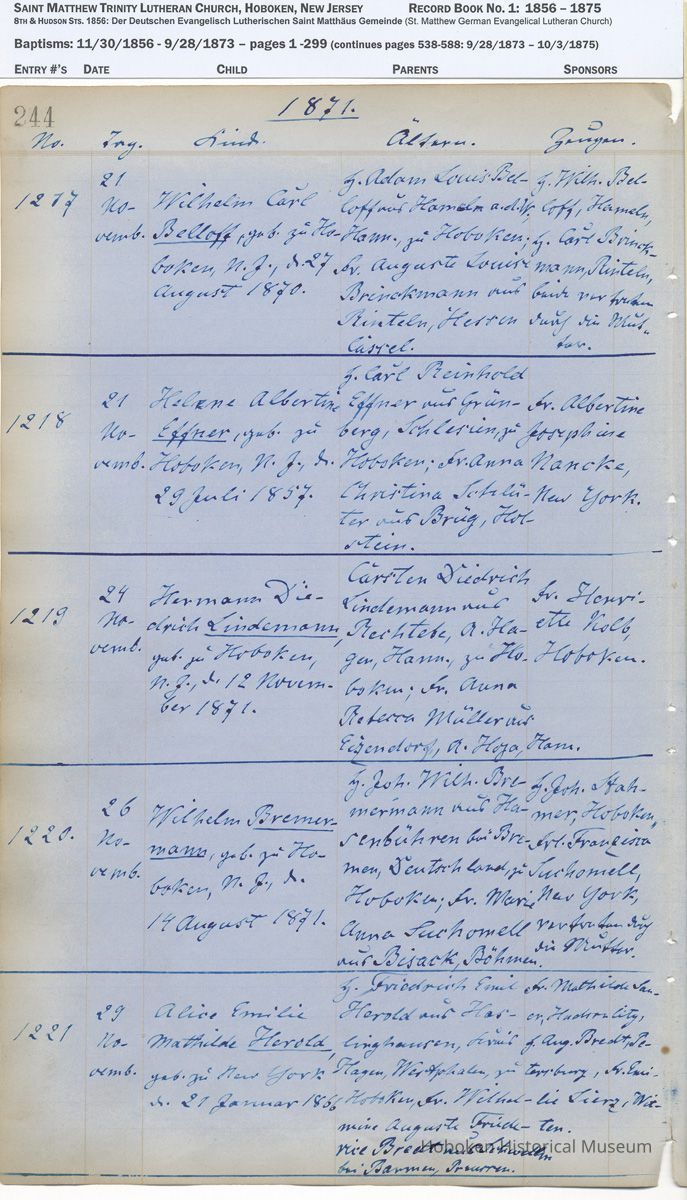 SAINT MATTHEW TRINITY LUTHERAN CHURCH, HOBOKEN, NEW JERSEY RECORD BOOK NO. 1: 1856 – 1875
8TH & HUDSON STS. 1856: Der Deutschen Evangelisch Lutherischen Saint Matthäus Gemeinde (St. Matthew German Evangelical Lutheran Church)
Baptisms: 11/30/1856 - 9/28/1873 – pages 1 -299 (continues pages 538-588: 9/28/1873 – 10/3/1875)
ENTRY #'S DATE CHILD PARENTS SPONSORS
244
1871.
No. Tag. Kind. Ältern. Zeugen.
1217
21
No-
vemb.
Wilhelm Carl
Belloff, geb. zu Ho-
boken, N. J., d. 27
August 1870.
H. Adam Louis Bel-
loff aus Hameln
Hann., zu Hoboken;
Fr. Auguste Louise
Brinckmann aus
Rinteln, Hessen
Cassel.
H. Wilh. Bel-
loff, Hameln,
H. Carl Brinck-
mann, Rinteln,
beide vertreten
durch die Mut-
ter.
1218
21
No-
vemb.
Helene Albertine
Effner, geb. zu
Hoboken, N. J., d.
29 Juli 1857.
H. Carl Reinhold
Effner aus Grün-
berg, Schlesien, zu
Hoboken; Fr. Anna
Christina Schlü-
ter aus Brüg, Hol-
stein.
Fr. Albertine
Josephine
Nancke,
New York.
1219
24
No-
vemb.
Hermann Die-
drich Lindemann,
geb. zu Hoboken,
N. J., d. 12 Novem-
ber 1871.
Carsten Diedrich
Lindemann aus
Rechtebe, A. Ha-
gen, Hann., zu Ho-
boken; Fr. Anna
Rebecca Müller aus
Eizendorf, A. Hoja, Hann.
Fr. Henri-
ette Kolb,
Hoboken.
1220.
26
No-
vemb.
Wilhelm Bremer-
mann, geb. zu Ho-
boken, N. J., d.
14 August 1871.
H. Joh. Wilh. Bre-
mermann aus Ha-
senbühren bei Bre-
men, Deutschland, zu
Hoboken; Fr. Marie
Anna Suchomell
aus Bisack, Böhmen.
H. Joh. Stah-
mer, Hoboken,
Frl. Francisca
Suchomell,
New York,
vertreten durch
die Mutter.
1221
29
No-
vemb.
Alice Emilie
Mathilde Herold,
geb. zu New York
d. 21 Januar 1866
H. Friedrich Emil
Herold aus Has-
linghausen, Kreis
Hagen, Westphalen, zu
Hoboken, Fr. Wilhel-
mine Auguste Friede-
rice Bredt aus
bei Barmen, Preussen.
Fr. Mathilde San-
er,
H. Aug. Bredt, Pe-
tersburg, Fr. Emi-
lie Sierz, Wit-
ten.
Hoboken Historical Museum